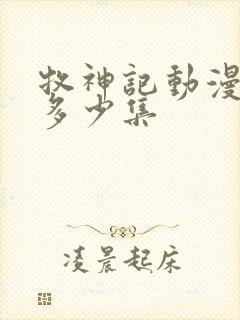 牧神記動漫
多少集
凌晨起床